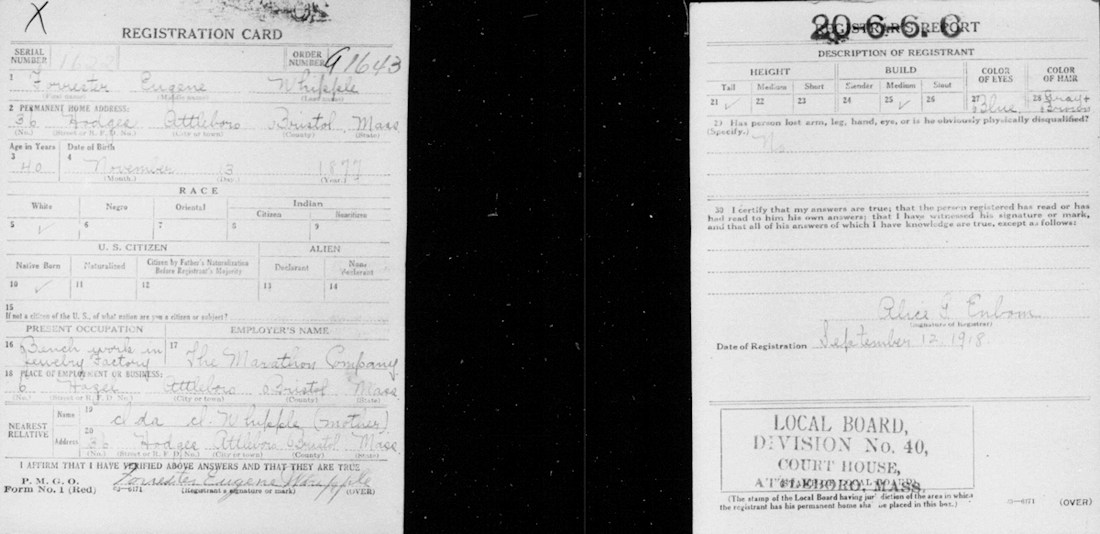 X
REGISTRATION CARD
SERIAL NUMBER ORDER NUMBER A1643
1 Forrester Eugene Whipple
(First name) (Middle name) (Last name)
2 PERMANENT HOME ADDRESS:
36 Hodges Attleboro Bristol Mass
(No.) (Street or R. F. D. No.) (City or town) (County) (State)
Age in Years Date of Birth
3 40 4 November 13 1877
(Month.) (Day.) (Year.)
RACE
White Negro Oriental Indian
Citizen Noncitizen
5 ✓ 6 7 8 9
U. S. CITIZEN ALIEN
Native Born Naturalized Citizen by Father's Naturalization Before Registrant's Majority Declarant Non-declarant
10 ✓ 11 12 13 14
15
If not a citizen of the U. S., of what nation are you a citizen or subject?
PRESENT OCCUPATION EMPLOYER'S NAME
16 Bench work in 17
Jewelry Factory The Marathon Company
18 PLACE OF EMPLOYMENT OR BUSINESS:
6 Hazel Attleboro Bristol Mass
(No.) (Street or R. F. D. No.) (City or town) (County) (State)
NEAREST RELATIVE
Name 19 Ida A. Whipple (mother)
Address 20 36 Hodges Attleboro Bristol Mass
(No.) (Street or R. F. D. No.) (City or town) (County) (State)
I AFFIRM THAT I HAVE VERIFIED ABOVE ANSWERS AND THAT THEY ARE TRUE
P. M. G. O.
Form No. 1 (Red) 03-6171 Forrester Eugene Whipple
(Registrant's signature or mark) (OVER)
20-6-6.0
REGISTRAR'S REPORT
DESCRIPTION OF REGISTRANT
HEIGHT BUILD COLOR OF EYES COLOR OF HAIR
Tall Medium Short Slender Medium Stout
21 ✓ 22 23 24 25 ✓ 26 27 Blue 28 Gray + Brown
29 Has person lost arm, leg, hand, eye, or is he obviously physically disqualified?
(Specify.) No
30 I certify that my answers are true; that the person registered has read or has
had read to him his own answers; that I have witnessed his signature or mark,
and that all of his answers of which I have knowledge are true, except as follows:
Alice T. Enbom
(Signature of Registrar)
Date of Registration September 12 1918.
LOCAL BOARD,
DIVISION No. 40,
COURT HOUSE,
ATTLEBORO, MASS.
(The stamp of the Local Board having jurisdiction of the area in which
the registrant has his permanent home shall be placed in this box.)
03-6171 (OVER)